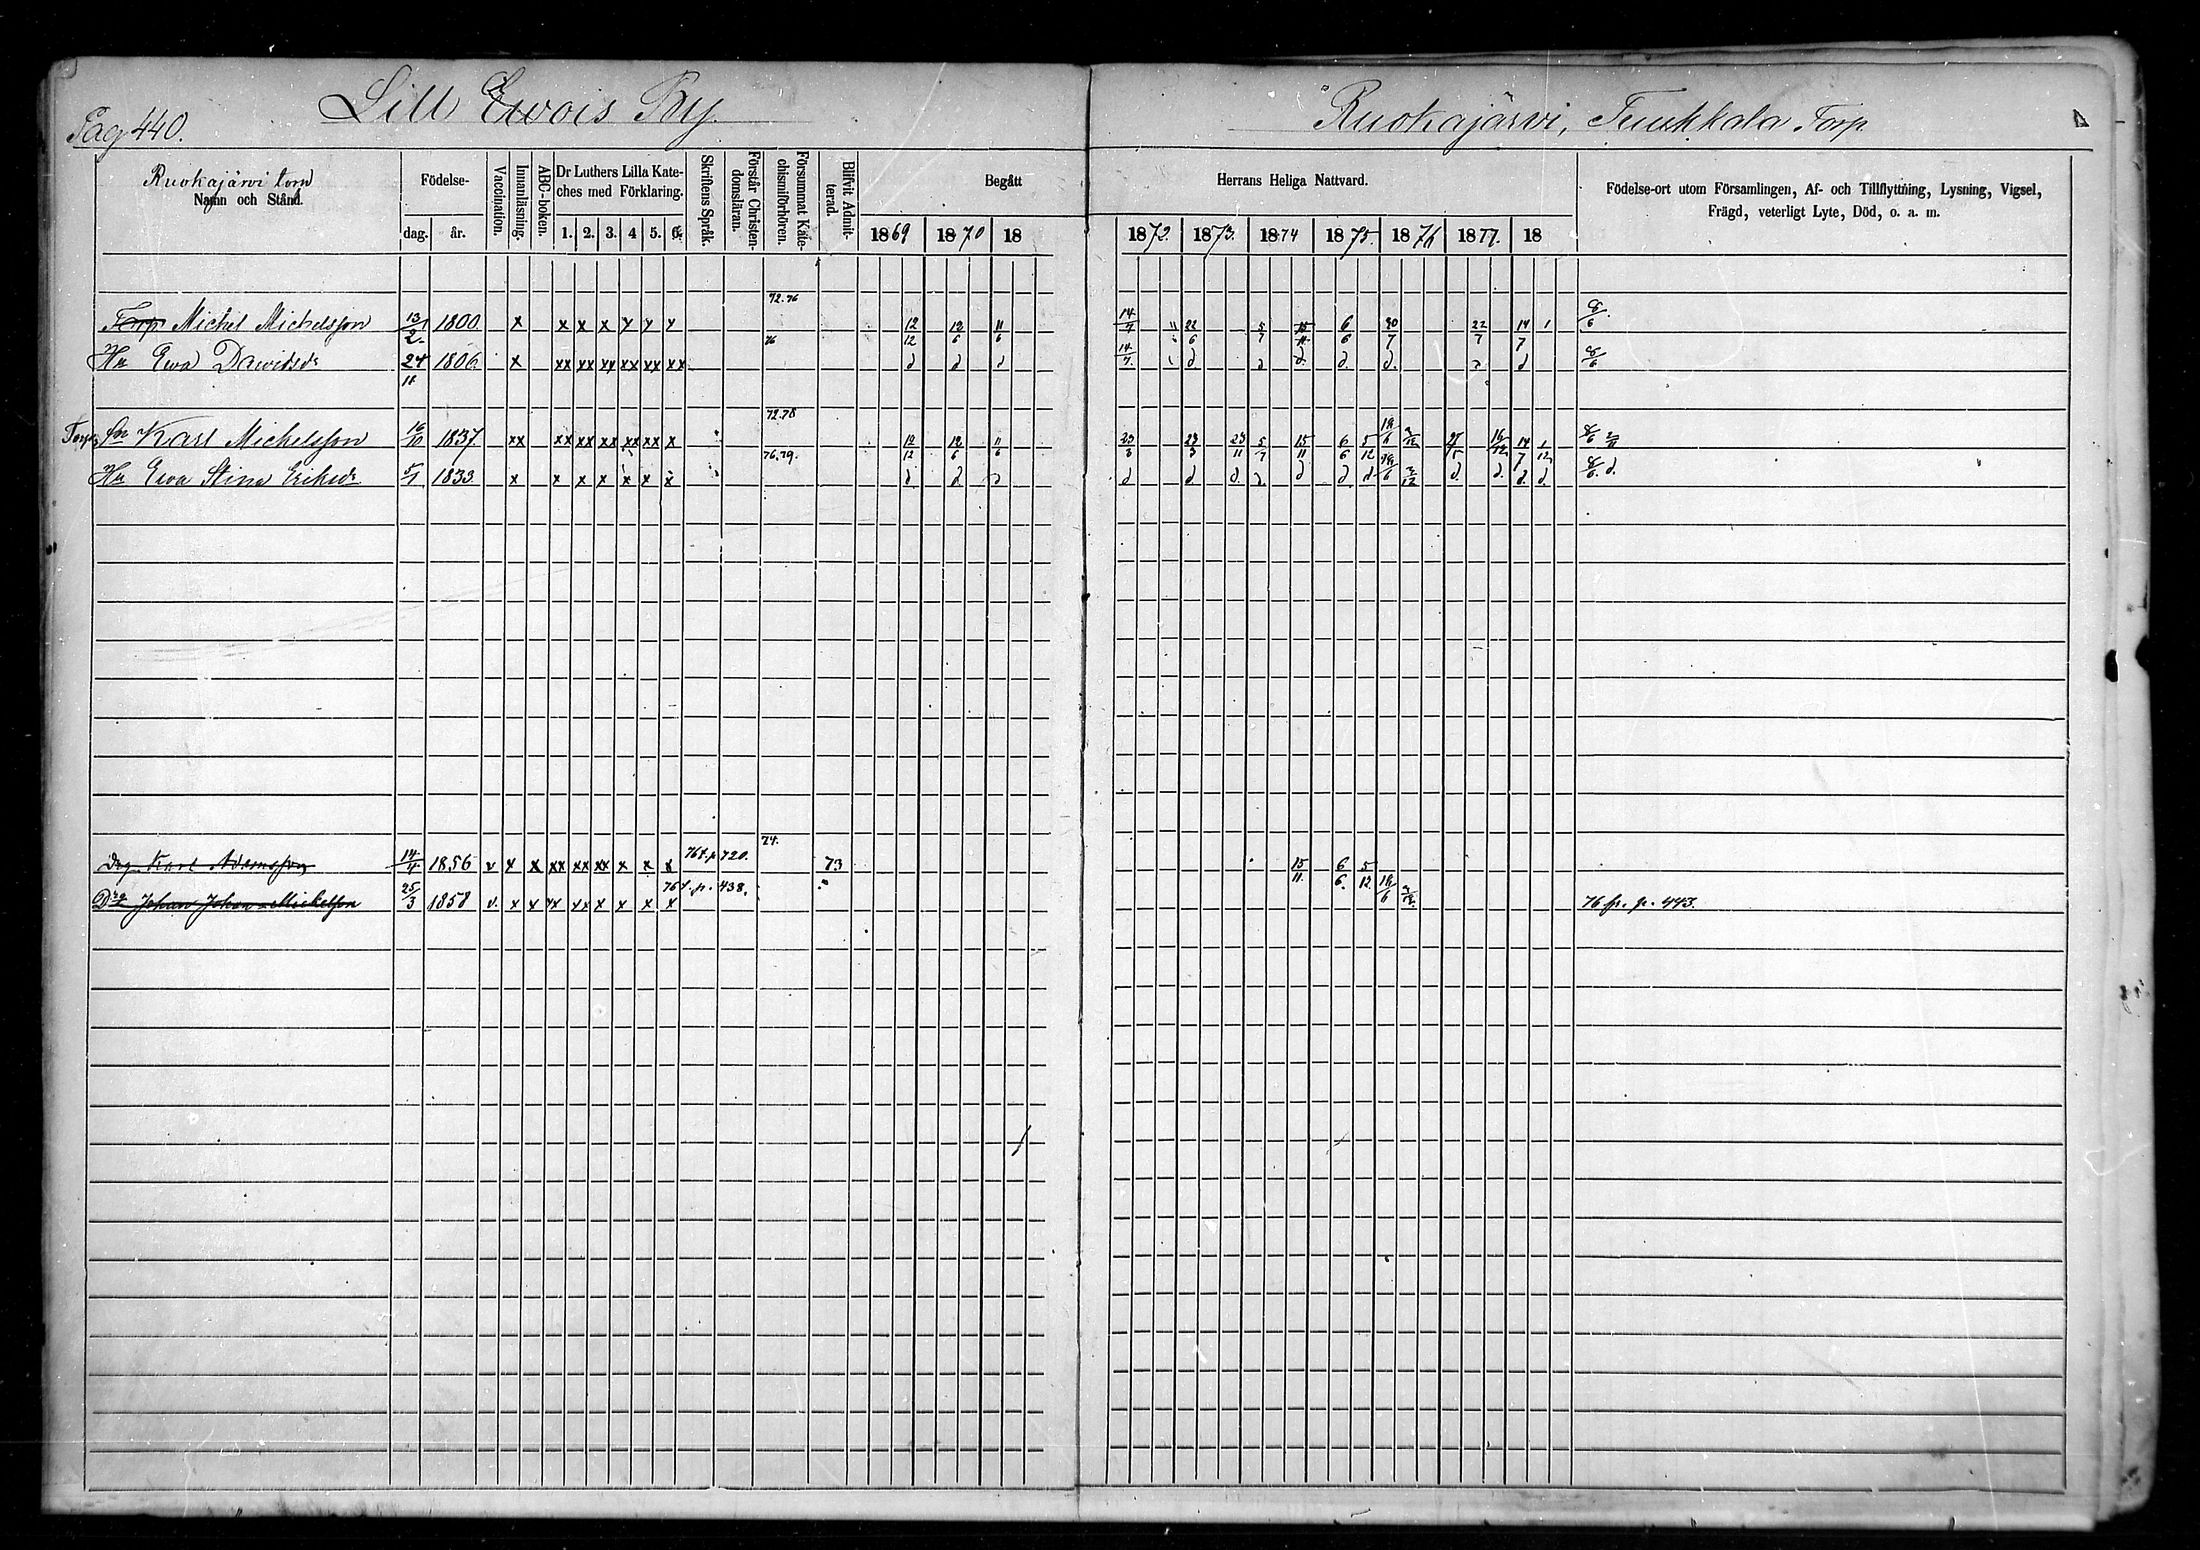 Pag 440.
Lill Ewois By.
Ruokajärvi, Tuukkala Torp.
Ruokajärvi torp
Namn och Stånd.
Födelse-
dag. år.
Vaccination.
Innanläsning.
ABC-boken.
Dr Luthers Lilla Kate-
ches med Förklaring.
1. 2. 3. 4 5. 6.
Skriftens Språk.
Förstår Christen-
domsläran.
Försummat Kate-
chismiförhören.
Blifvit Admit-
terad.
Begått
1869 1870 18
Herrans Heliga Nattvard.
1872. 1873. 1874 1875. 1876 1877. 18
Födelse-ort utom Församlingen, Af- och Tillflyttning, Lysning, Vigsel,
Frägd, veterligt Lyte, Död, o. a. m.
72.76
Torp Michel Michelsson 13/2 1800. x x x x y y y 12/12 12/6 11/6 14/7 22/6 5/7 15/11 6/6 30/7 22/7 14/7 1 8/6
76
Hu Ewa Dawidsdr 24/11 1806. x xx xx xx xx xx xx d d d 14/7 d d d. d. d. d d 8/6
72.78
Torp Sn Karl Michelsson 16/10 1837. xx xx xx xx xx xx x 12/12 12/6 11/6 23/3 23/3 23/11 5/7 15/11 6/6 5/12 18/6 14/7 1/12
76.79.
Hu Ewa Stina Eriksdr 5/1 1833. x x x x x x x d. d. d d d. d. d. d d. d 18/6 3/12 d. d. d. d. 8/6. d.
74.
Drg Karl Adamsson 14/4 1856 v x x xx xx xx x x x 76 t. p 720. 73 15/11. 6/6. 5/12
Drg Johan Johan Mickelsson 25/3 1858 v. x x xx xx x x x x 76 t. p. 438. 18/6 76 fr. p. 443.